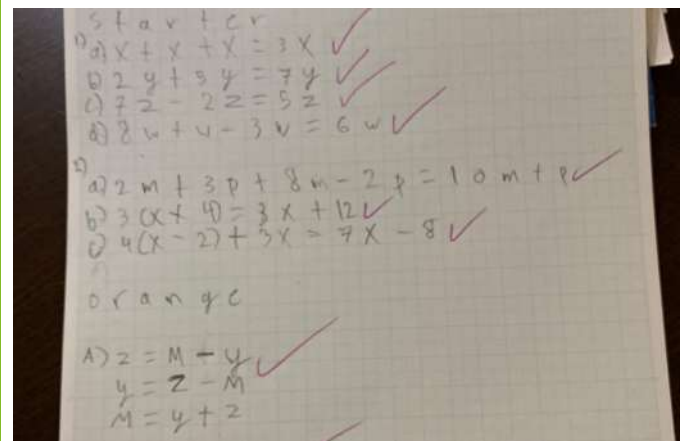 Starter
1) a) x + x + x = 3x
b) 2y + 5y = 7y
c) 7z - 2z = 5z
d) 8w + w - 3w = 6w
2) a) 2m + 3p + 8m - 2p = 10m + p
b) 3(x + 4) = 3x + 12
c) 4(x - 2) + 3x = 7x - 8
orange
A) z = M - y
y = z - M
M = y + z